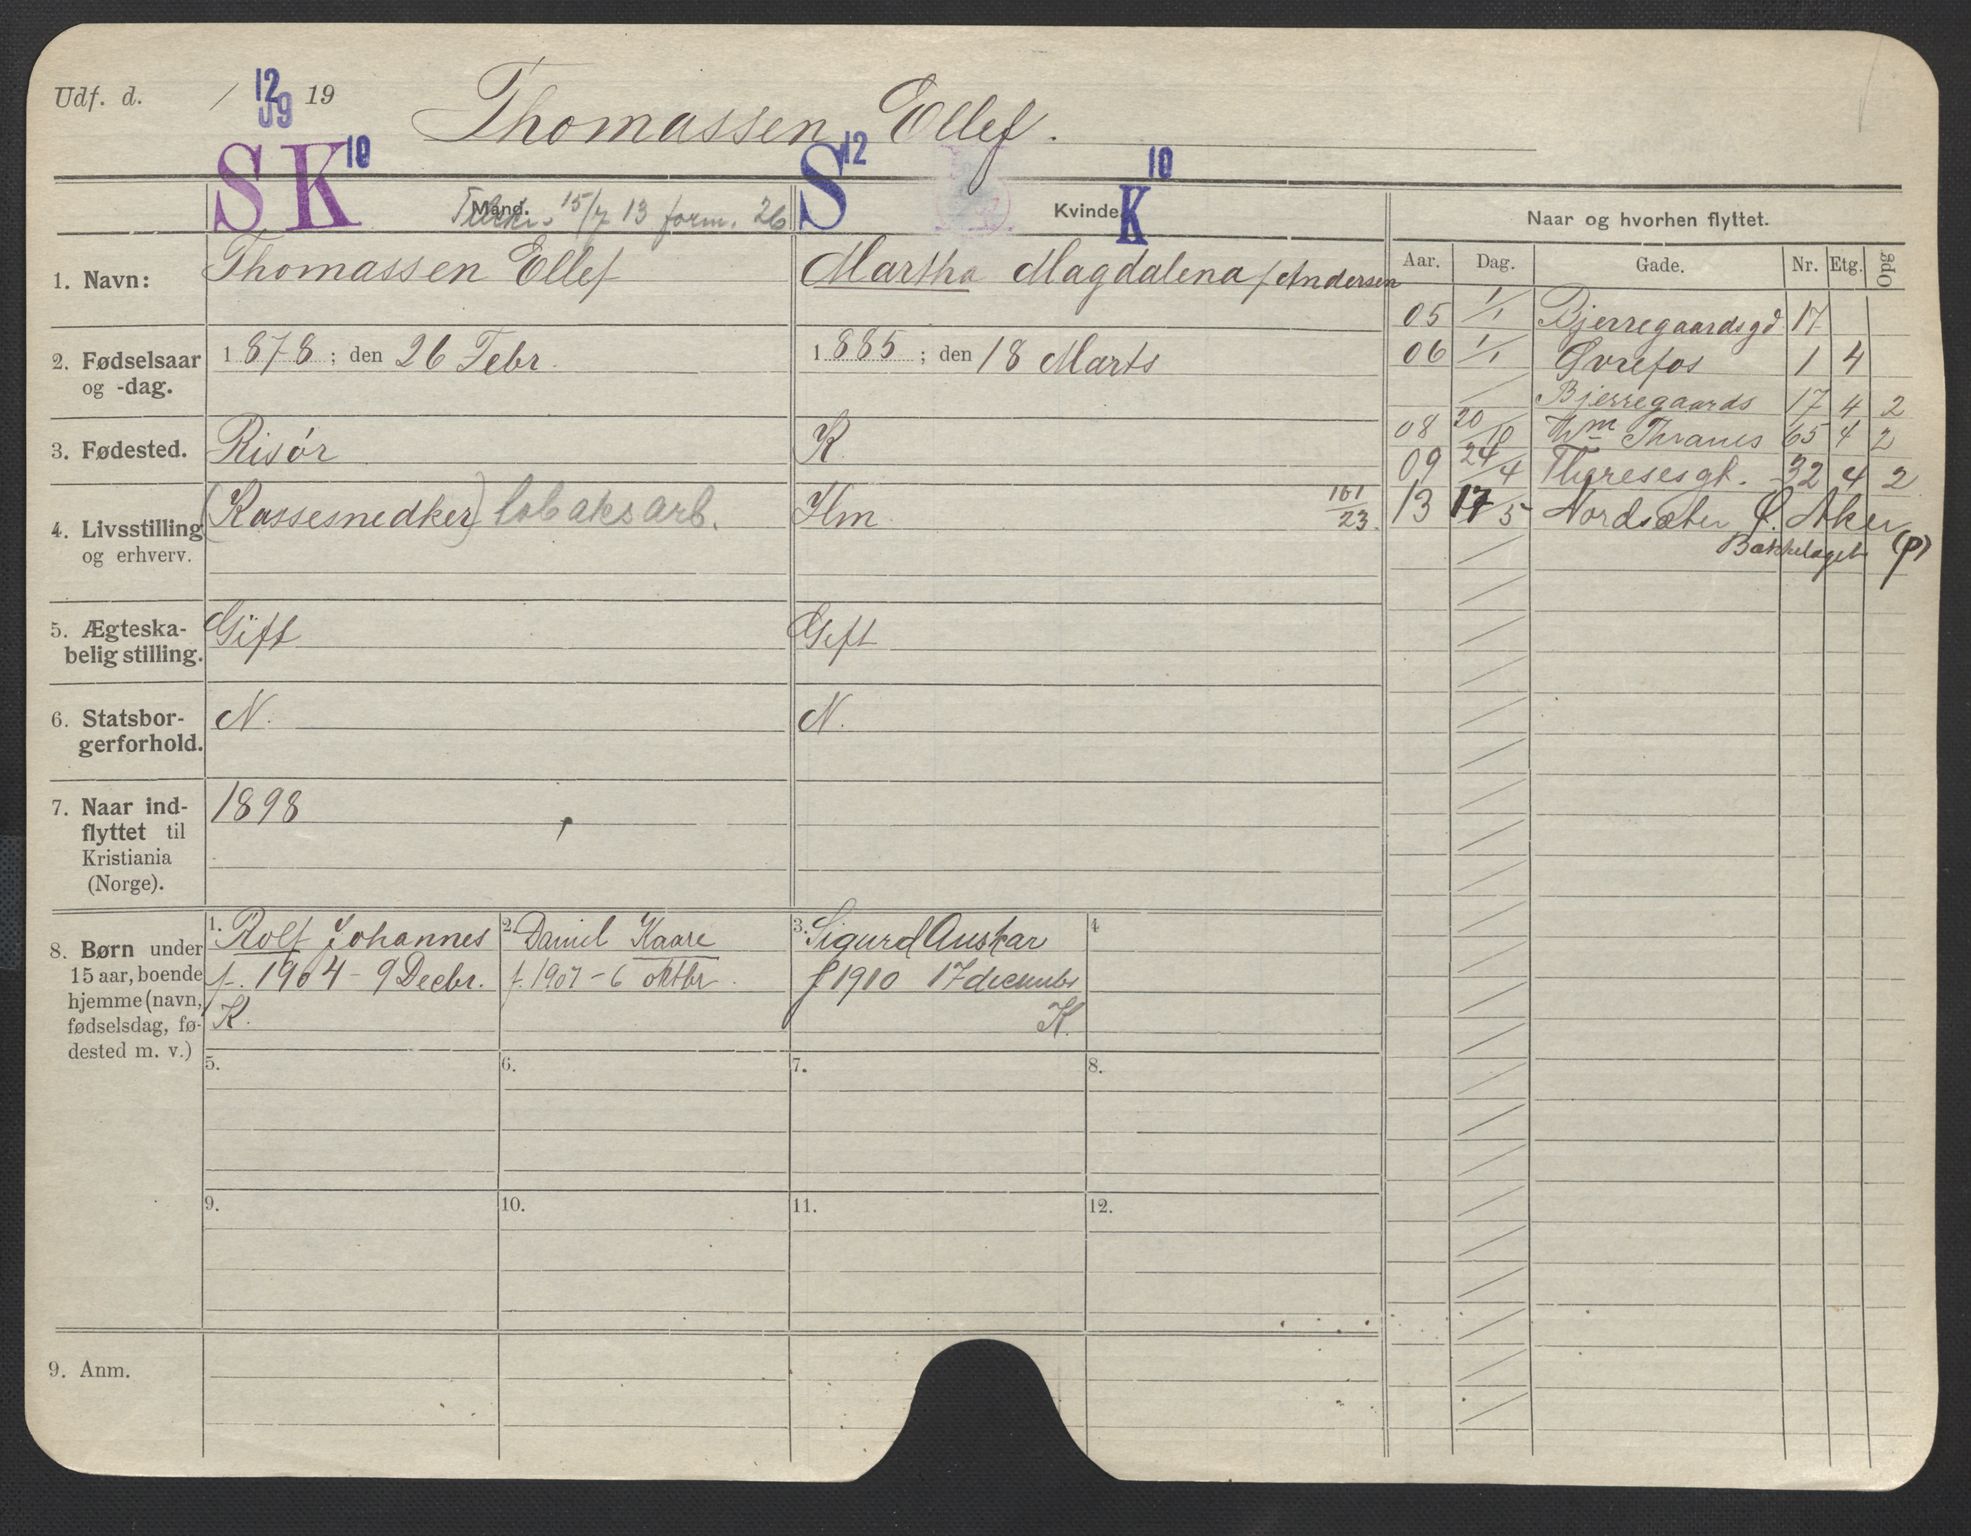 Udf. d. / 12 09 19 Thomassen Ellef.
S K 10 S 12 K 10
Mand. 15/7 13 form. 26 Kvinde Naar og hvorhen flyttet.
Aar. Dag. Gade. Nr. Etg. Opg
1. Navn: Thomassen Ellef Martha Magdalena f Andersen
05 1/1 Bjerregaardsgd 17
2. Fødselsaar og -dag. 1878; den 26 Febr. 1885; den 18 Marts
06 1/1 Øvrefos 1 4
/ Bjerregaards 17 4 2
3. Fødested. Risør K
08 20/10 Wm Thranes 65 4 2
09 24/4 Thyresesgt. 32 4 2
4. Livsstilling og erhverv. (Kassesnedker) tobaksarb. Hm 161/23.
13 17/5 Nordsæter Ø. Aker
Bækkelaget (P)
5. Ægteska-
belig stilling. Gift Gift
6. Statsbor-
gerforhold. N. N.
7. Naar ind-
flyttet til
Kristiania
(Norge). 1898
8. Børn under
15 aar, boende
hjemme (navn,
fødselsdag, fø-
dested m. v.)
1. Rolf Johannes
f. 1904 - 9 Decbr.
K.
2. Daniel Kaare
f. 1907 - 6 oktbr.
3. Sigurd Anskar
f 1910 17 decembr
K.
4
5. 6. 7. 8.
9. 10. 11. 12.
9. Anm.